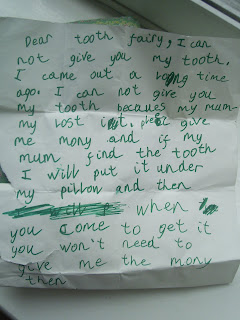 Dear tooth fairy, I can
not give you my tooth.
I came out a long time
ago. I can not give you
my tooth becaues my mum
my lost it. give
me mony and if my
mum find the tooth
I will put it under
my pillow and then
when
you come to get it
you won't need to
give me the mony
then